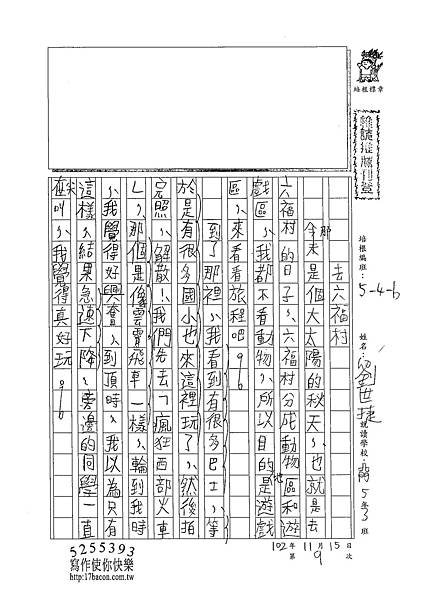 培根標章
雜誌推薦刊登
培根編班:5-4-6 姓名:劉世捷 就讀學校: 5年3班
102年11月15日
第9次
去六福村
那天是個大太陽的秋天,也就是去
六福村的日子,六福村分成動物區和遊
戲區,我都不看動物,所以目的地是遊戲
區,來看看旅程吧!
到了那裡,我看到有很多巴士,等
於是有很多國小也來這裡玩了,然後拍
完照,解散!我們先去「瘋狂西部火車
」,那個是像雲霄飛車一樣,輪到我時
,我覺得好興奮,到頂時,我以為只有
這樣,結果急速下降,旁邊的同學一直
在尖叫,我覺得真好玩。
5255393
寫作使你快樂
http://17bacon.com.tw